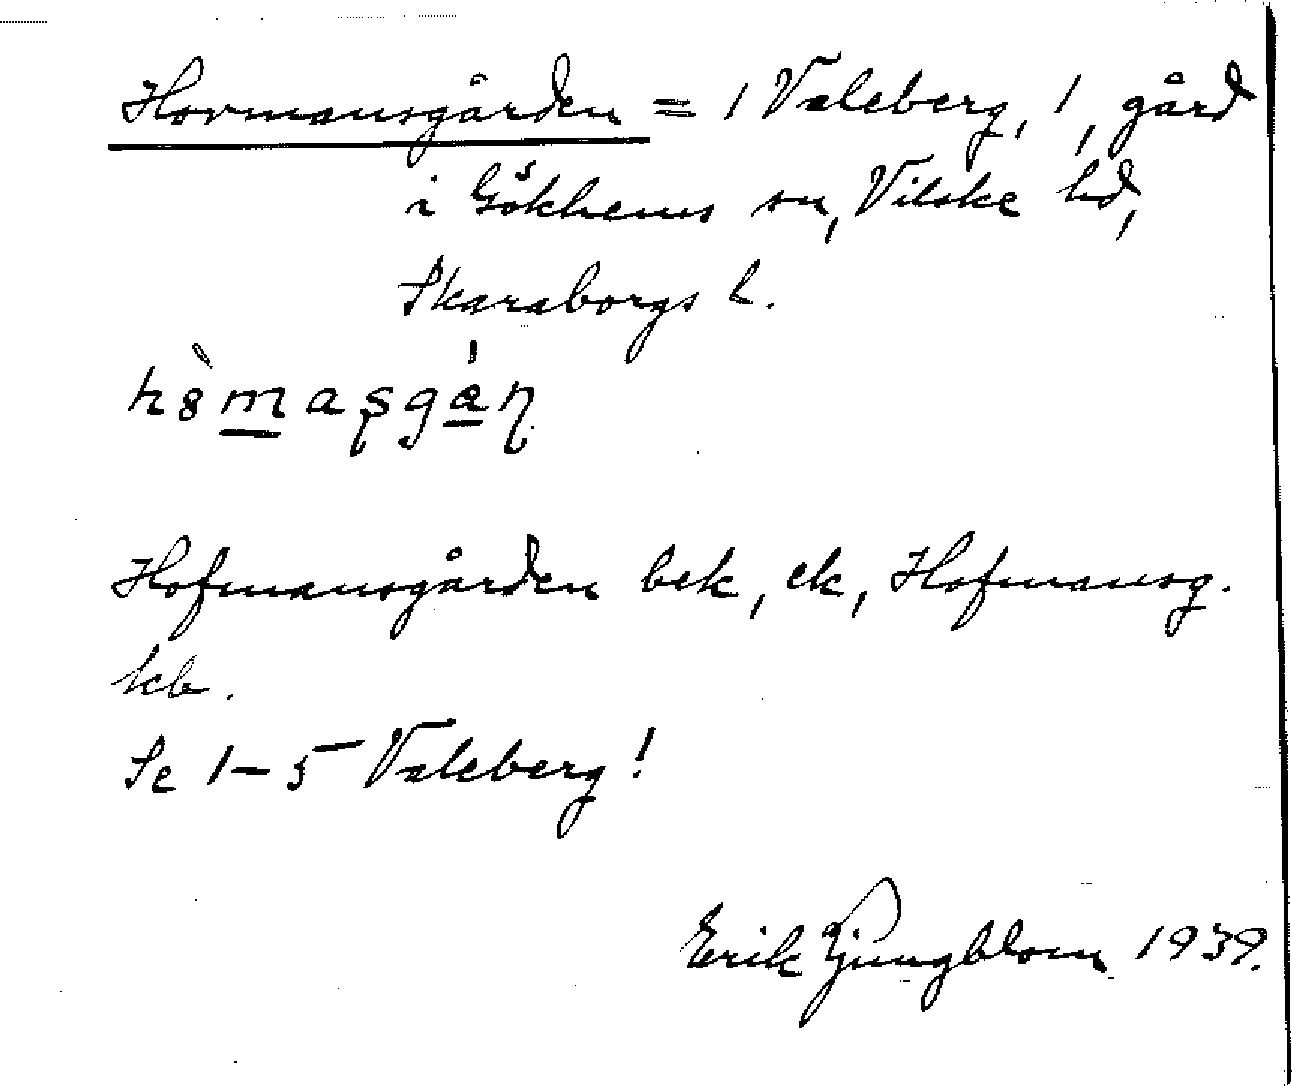 Hovmansgården = 1 Valeberg, 1, gård
i Gökhems sn, Vilske hd,
Skaraborgs l.
Hofmansgården bek, ek, Hofmansg.
kb.
Se 1–5 Valeberg!
Erik Ljungblom 1939.